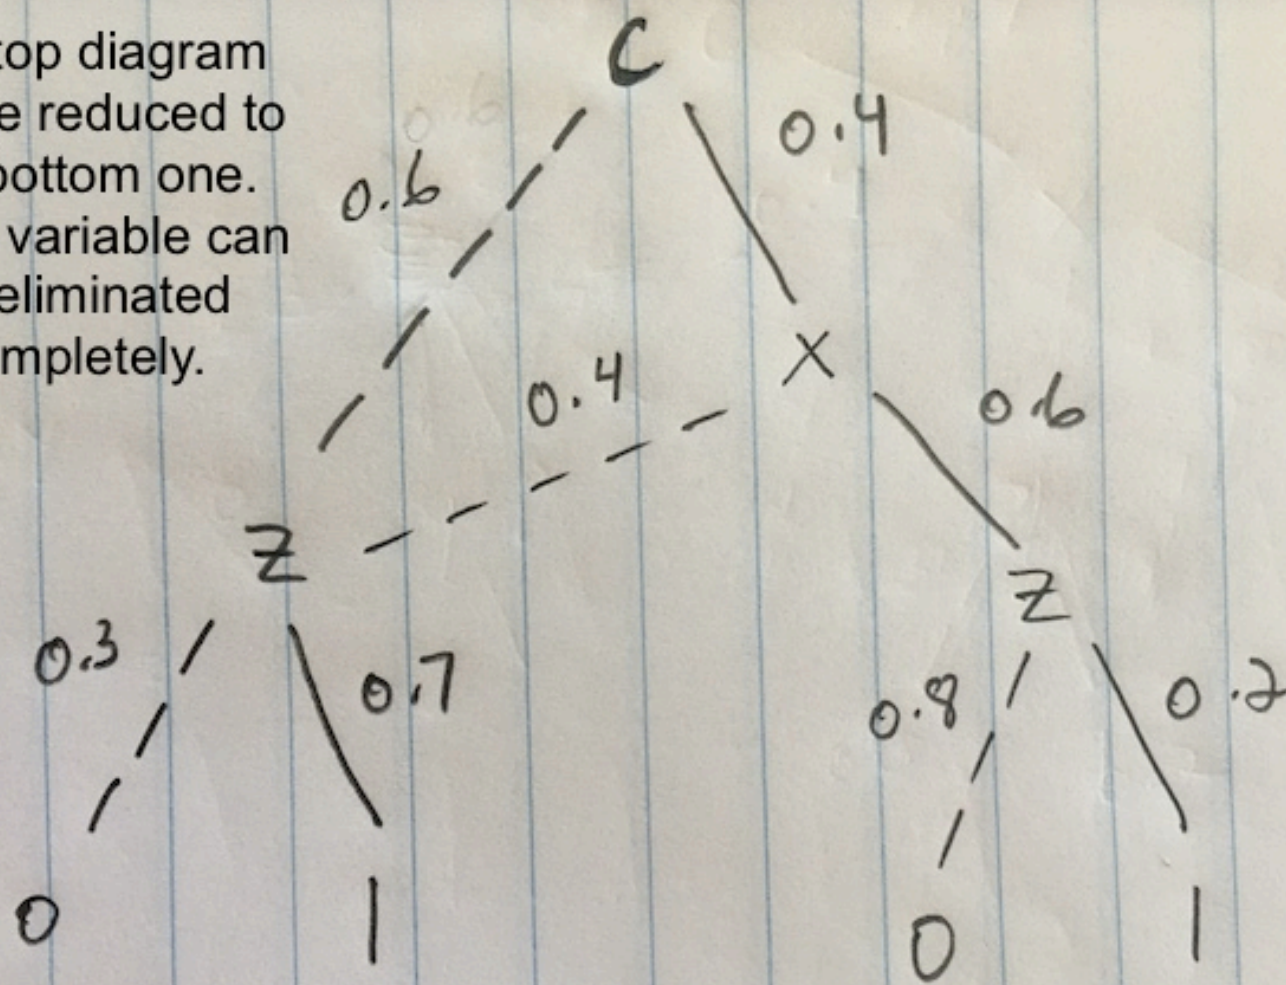 top diagram
e reduced to
bottom one.
variable can
eliminated
mpletely.
C
0.6
0.4
X
0.4
0.6
Z
Z
0.3
0.7
0.8
0.2
0
1
0
1